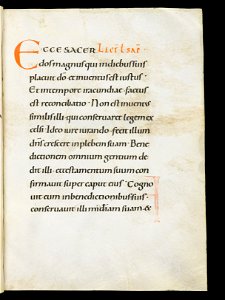 ECCE SACER
dos magnus qui indiebus suis
placuit do & inuentus est iustus .
Et intempore iracundiae factus
est reconciliatio . Non est inuentus
similis illi qui conseruaret legem ex
celsi . Ideo iureiurando . fecit illum
dns crescere in plebem suam . Bene
dictionem omnium gentium de
dit illi . & testamentum suum con
firmauit super caput eius . Cogno
uit eum inbenedictionibus suis .
conseruauit illi misdiam suam &